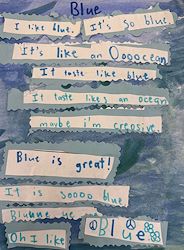 Blue
I like blue. It's so blue
It's like an Oooocean
It taste like blue
It taste likes an ocean
maybe i'm creosive
Blue is great!
It is soooo blue
Oh I like Blue